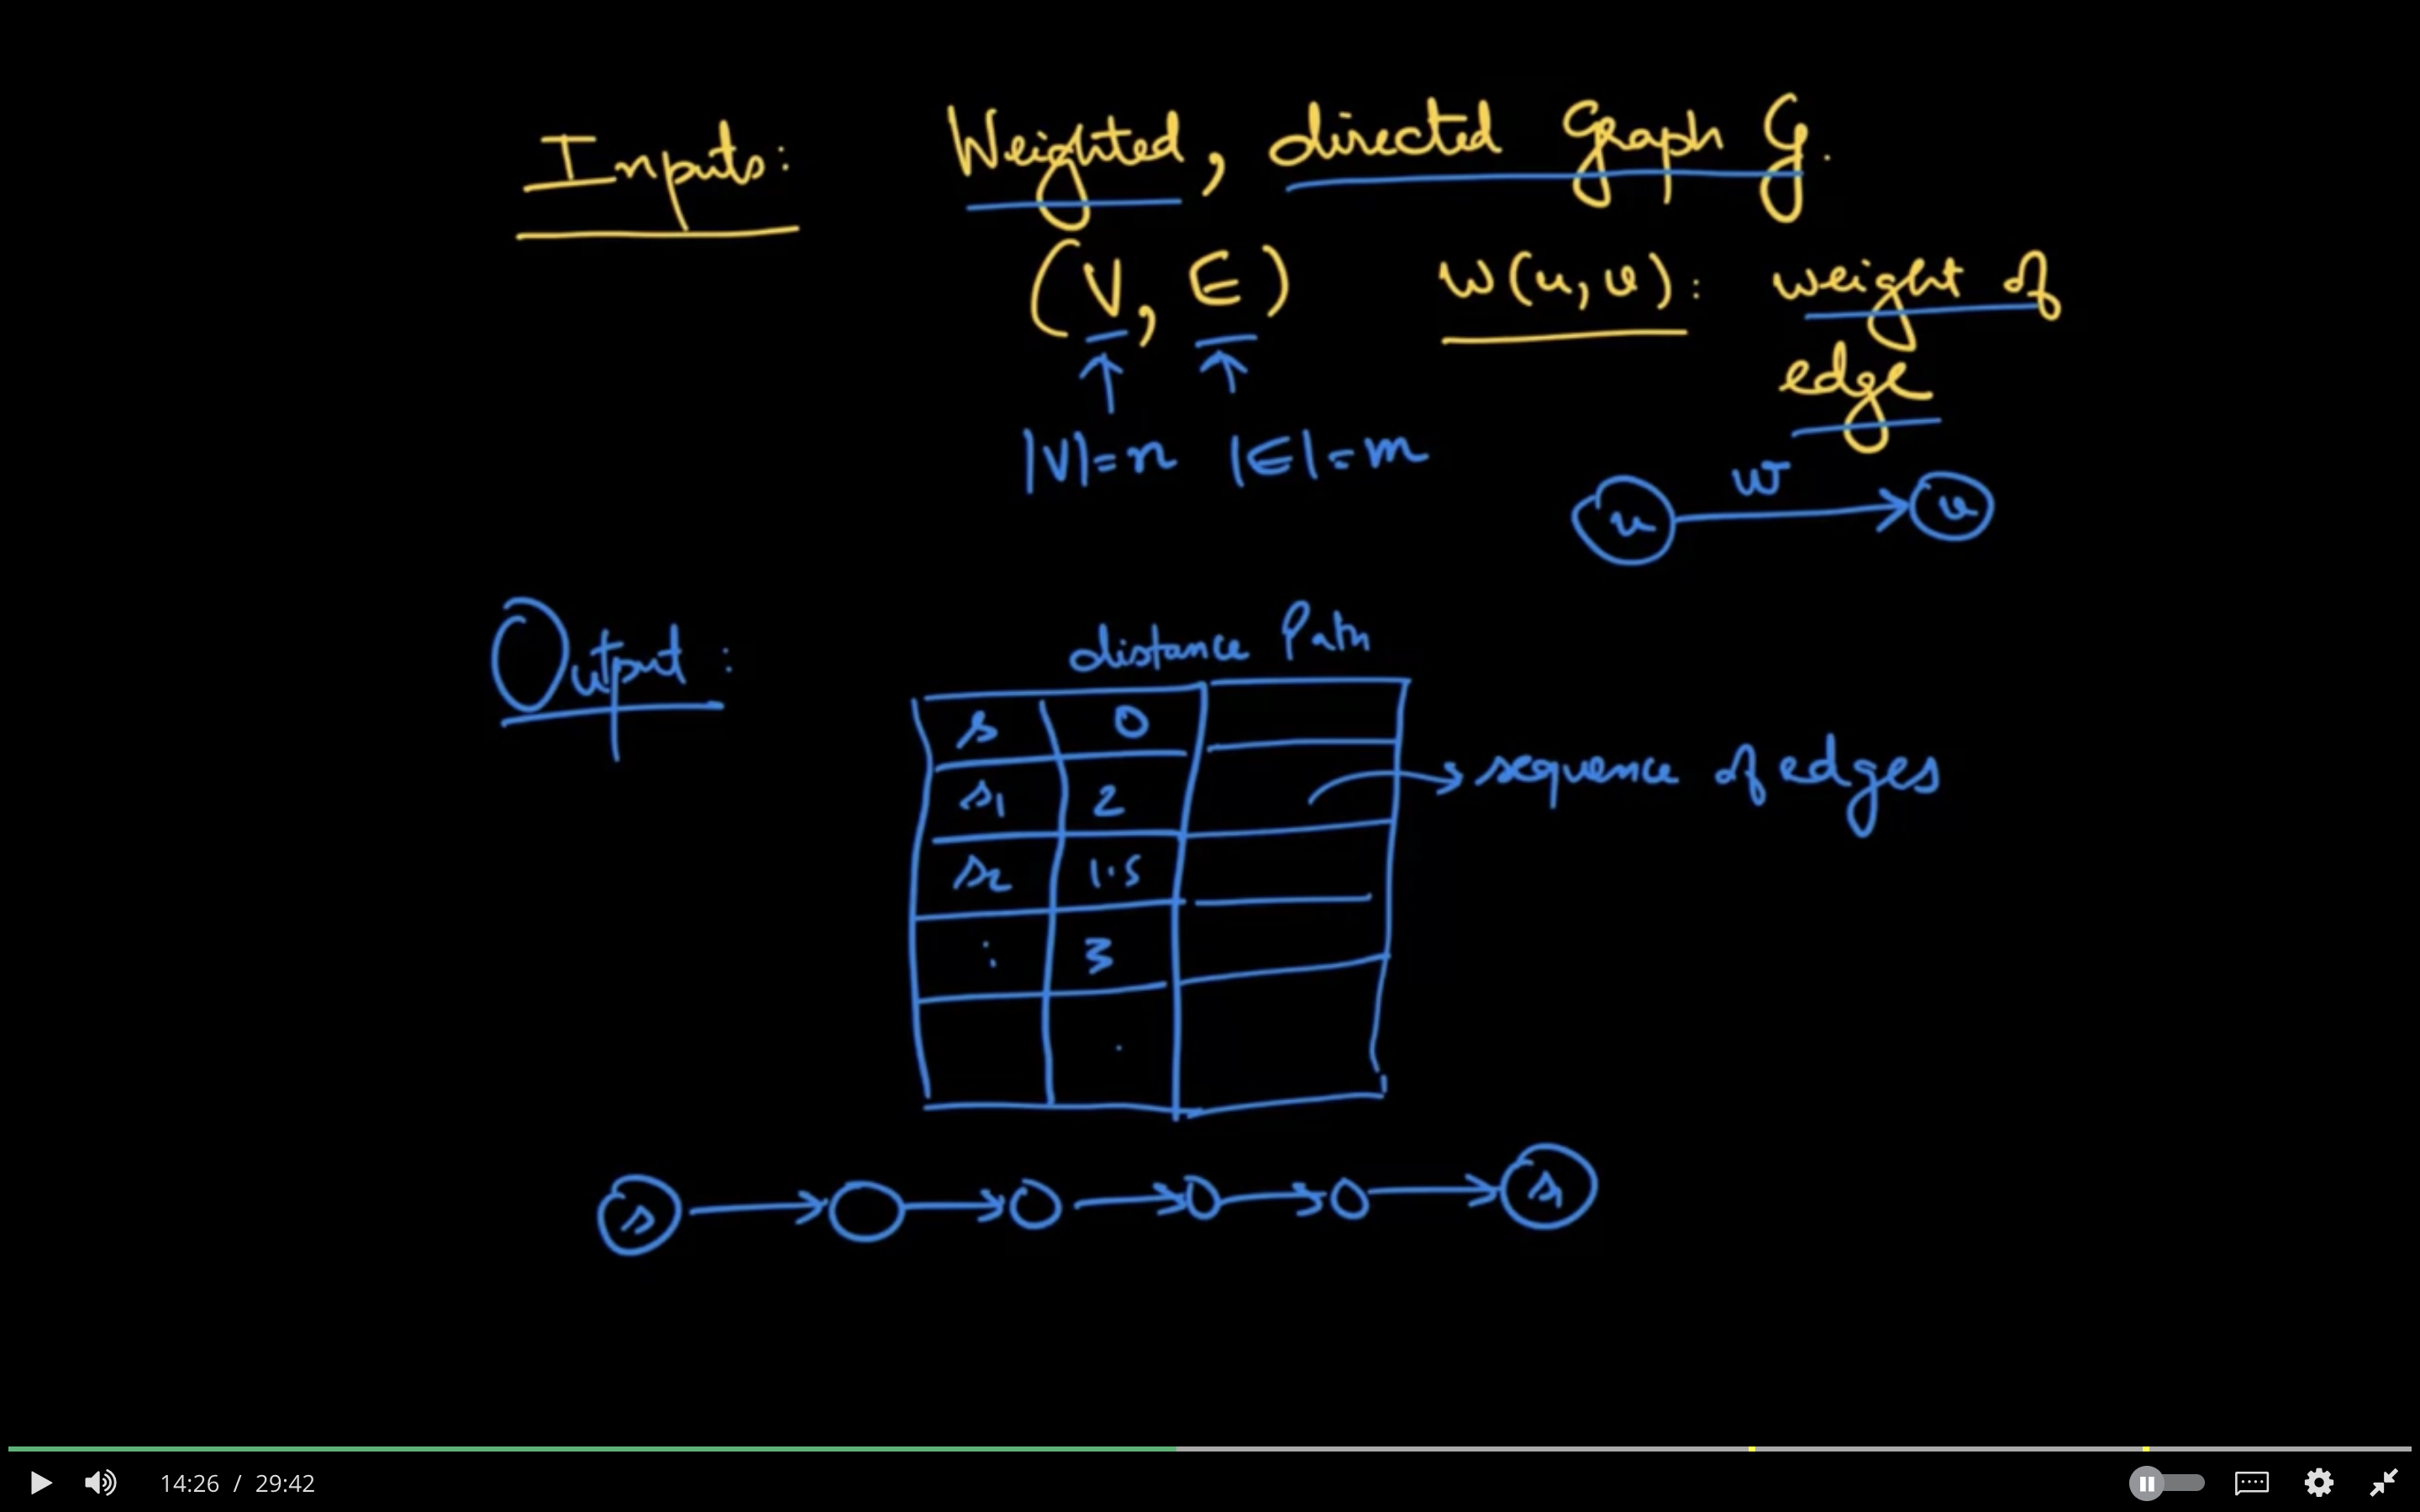 Inputs: Weighted, directed Graph G.
(V, E) w(u,v): weight of
edge
|V|=n |E|=m
u w v
Output: distance Path
s 0
s1 2 sequence of edges
s2 1.5
: 3
.
s s1
14:26 / 29:42